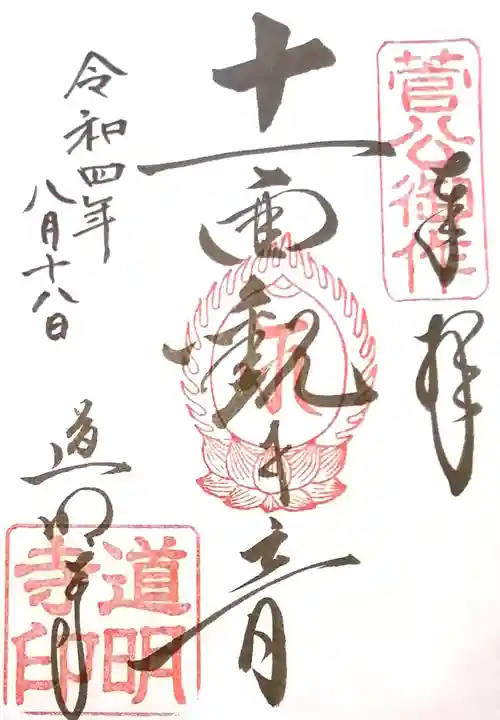 菅公御作
奉拝
十一面観世音
令和四年
八月十八日
道明寺
道明寺印